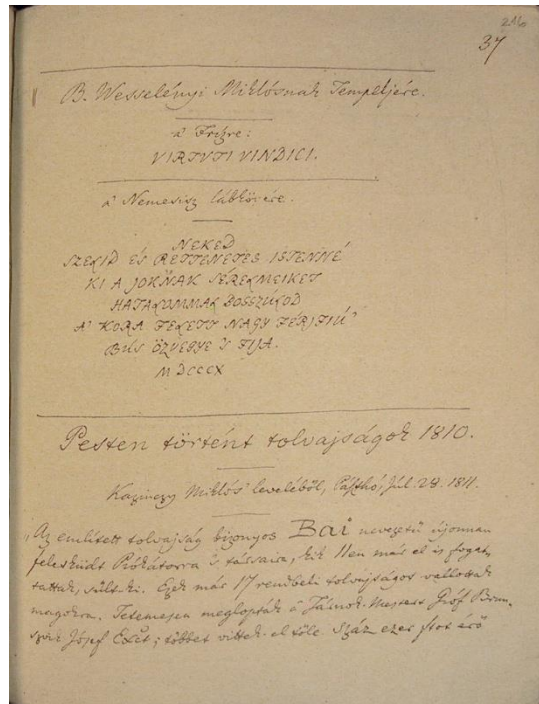 216
37
B. Wesselényi Miklósnak Templjére.
a' Frízre:
VIRTVTI VINDICI.
a' Nemesisz lábkövére.
NEKED
SZELID ÉS RETTENETES ISTENNÉ
KI A JÓKNAK SÉRELMEIKET
HATALOMMAL BOSSZÚLOD
A' KORA FEKETT NAGY FÉRJFIÚ'
BÚS ÖZVEGYE 'S FIJA.
MDCCCX
Pesten történt tolvajságok 1810.
Kazinczy Miklós' leveléből, Pásthó, Júl. 28. 1811.
Az említett tolvajság bizonyos Bai nevezetű újonnan
felesküdt Prókátorra 's társaira, kik 11en már el is fogat-
tattak, sült-ki. Ezek már 17 rendbeli tolvajságot vallottak
magokra. Tetemesen meglopták a' Tárnok-Mestert Gróf Brun-
szvik Jósef Exct; többet vittek-el tőle Száz ezer ftot érő